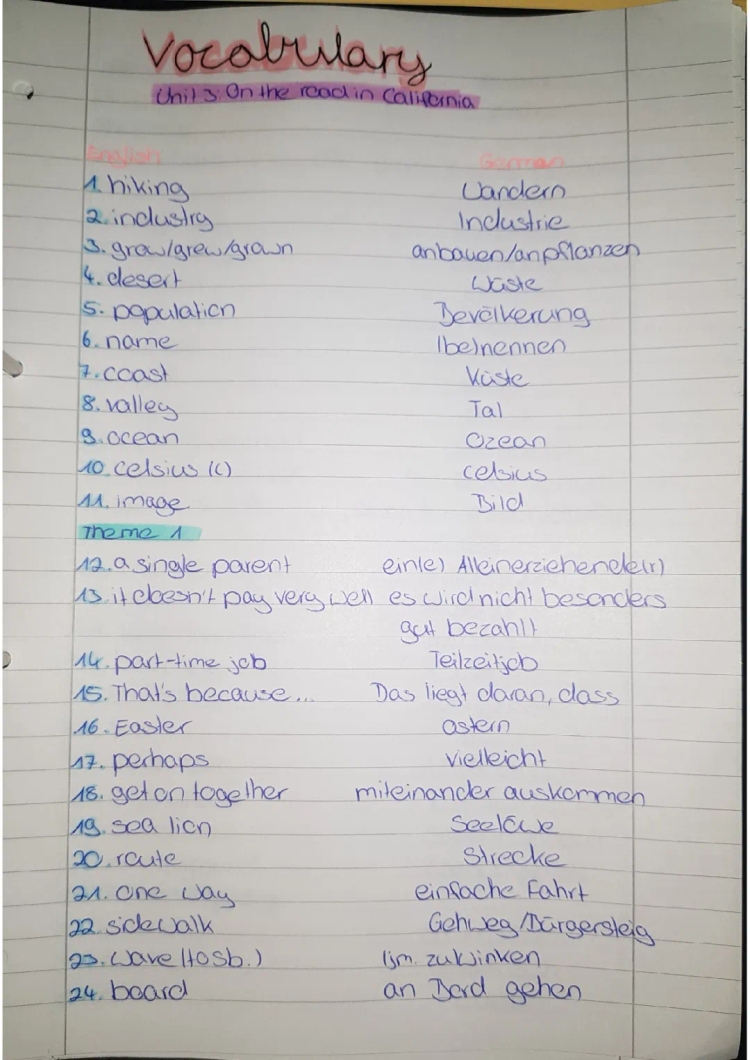 Vocabulary
Unit 3: On the road in California
English German
1. hiking Wandern
2. industry Industrie
3. grow/grew/grown anbauen/anpflanzen
4. desert Wüste
5. population Bevölkerung
6. name (be)nennen
7. coast Küste
8. valley Tal
9. ocean Ozean
10. celsius (C) celsius
11. image Bild
Theme 1
12. a single parent ein(e) Alleinerziehende(r)
13. it doesn't pay very well es wird nicht besonders
gut bezahlt
14. part-time job Teilzeitjob
15. That's because... Das liegt daran, dass
16. Easter Ostern
17. perhaps vielleicht
18. get on together miteinander auskommen
19. sea lion Seelöwe
20. route Strecke
21. one way einfache Fahrt
22. sidewalk Gehweg/Bürgersteig
23. wave (to sb.) (jm. zu)winken
24. board an Bord gehen